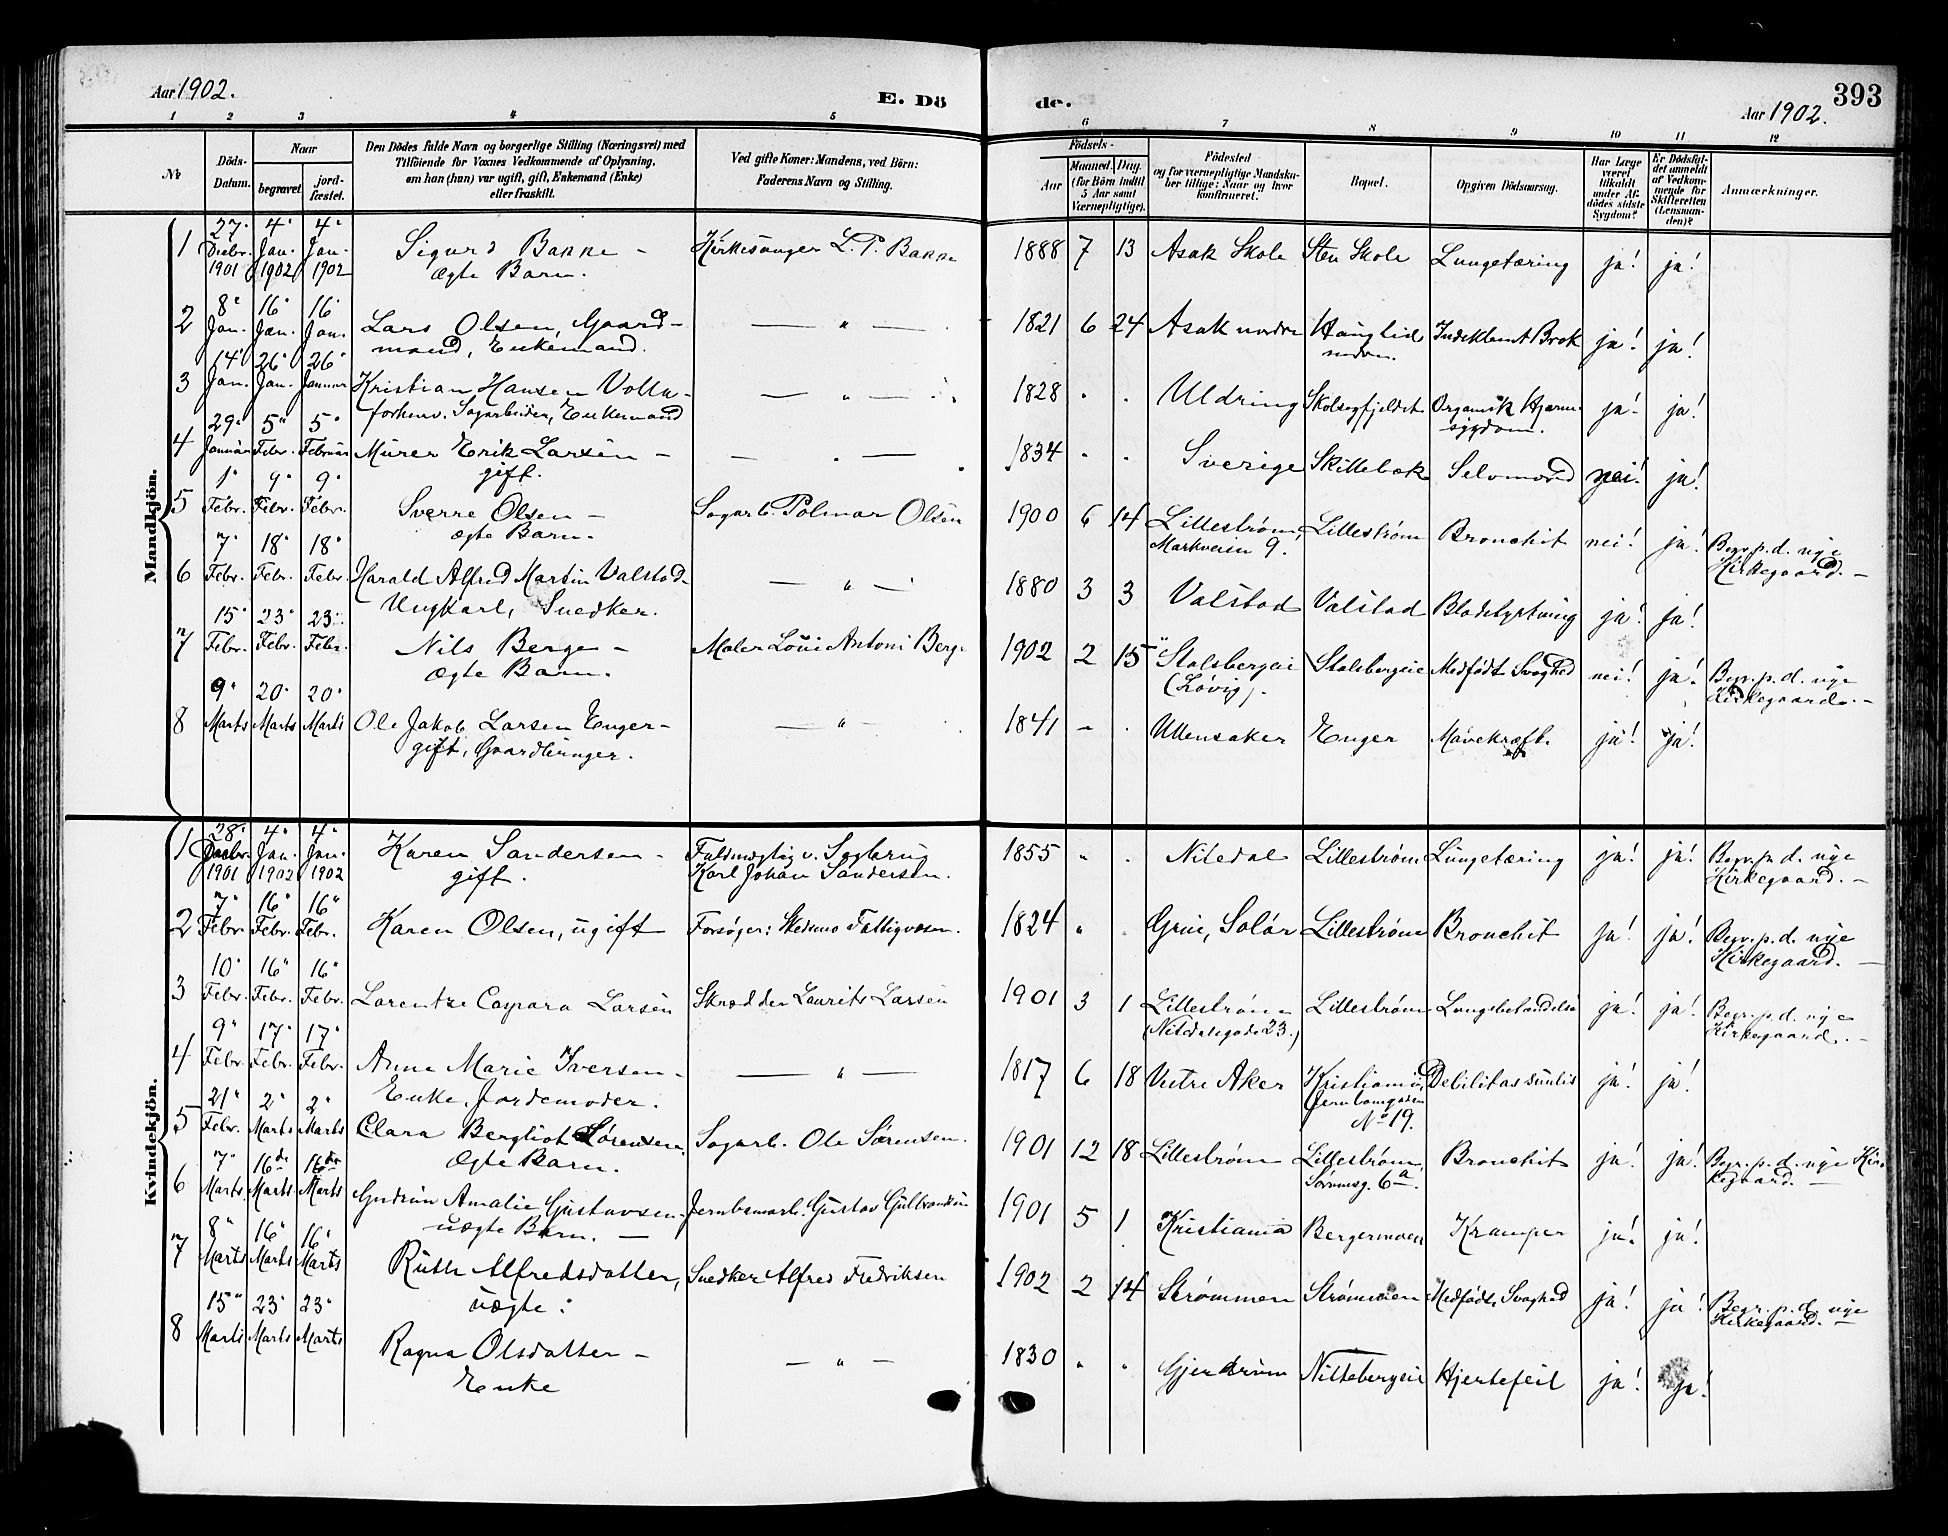 Aar 1902.
E. Dö
de.
Aar 1902.
393
1 2 3 4 5
6 7 8 9 10 11 12
No
Döds-Datum.
Naar
begravet.
jordfæstet.
Den Dödes fulde Navn og borgerlige Stilling (Næringsvei) med
Tilföiende for Voxnes Vedkommende af Oplysning,
om han (hun) var ugift, gift, Enkemand (Enke)
eller fraskilt.
Ved gifte Koner: Mandens, ved Börn:
Faderens Navn og Stilling.
Födsels-
Aar
Maaned. Dag.
(for Börn indtil
5 Aar samt
Værnepligtige).
Födested
og for værnepligtige Mandskaber tillige: Naar og hvor
konfirmeret.
Bopæl.
Opgiven Dödsaarsag.
Har Læge
været
tilkaldt
under Afdödes sidste
Sygdom?
Er Dödsfaldet anmeldt
af Vedkommende for
Skifteretten
(Lensmanden)?
Anmærkninger.
Mandkjön.
1 27. Decbr. 1901 4. Jan. 1902 4. Jan. 1902 Sigurd Bakke - ægte Barn. Kirkesanger L. P. Bakke 1888 7 13 Asak Skole Sten Skole Lungetæring ja! ja!
2 8. Jan. 16. Jan. 16. Jan. Lars Olsen, Gaardmand, Enkemand. — " — 1821 6 24 Asak nordre Hauglid nedre. Indeklemt Brok ja! ja!
3 14. Jan. 26. Jan. 26. Januar Kristian Hansen Volla - forhenv. Sagarbeider, Enkemand — " — 1828 " " Uldring Skolsegfjeldet Organisk Hjernesygdom. ja! ja!
4 29. Januar 5. Febr. 5. Februar Murer Erik Larsen - gift. — " — 1834 " " Sverige Skillebæk Selvmord nei! ja!
5 1. Febr. 9. Febr. 9. Febr. Sverre Olsen - ægte Barn. Sagarb. Polmar Olsen 1900 6 14 Lillestrøm, Markveien 9. Lillestrøm Bronchit nei! ja! Begr. p. d. nye Kirkegaard. -
6 7. Febr. 18. Febr. 18. Febr. Harald Alfred Martin Valstad - Ungkarl, Snedker. — " — 1880 3 3 Valstad Valstad Blodstyrtning ja! ja!
7 15. Febr. 23. Febr. 23. Febr. Nils Berge - ægte Barn. Maler Loui Antoni Berge 1902 2 15 Stalsbergeie (Løvig). Stalsbergeie Medfødt Svaghed nei! ja! Begr. p. d. nye Kirkegaard. -
8 9. Marts 20. Marts 20. Marts Ole Jakob Larsen Enger - gift, Gaardbruger. — " — 1841 - " Ullensaker Enger Mavekræft. ja! ja!
Kvindekjön.
1 28. Decbr. 1901 4. Jan. 1902 4. Jan. 1902 Karen Sandersen - gift. Fuldmægtig v. Sagbrug Karl Johan Sandersen. 1855 " " Nitedal Lillestrøm Lungetæring ja! ja! Begr. p. d. nye Kirkegaard. -
2 7. Febr. 16. Febr. 16. Febr. Karen Olsen, ugift Forsøger: Skedsmo Fattigvæsen. 1824 " " Grue, Solør Lillestrøm Bronchit ja! ja! Begr. p. d. nye Kirkegaard. -
3 10. Febr. 16. Febr. 16. Febr. Lorentze Caspara Larsen Skrædder Laurits Larsen 1901 3 1 Lillestrøm (Nitedalsgade 23.) Lillestrøm Lungebetændelse ja! ja! Begr. p. d. nye Kirkegaard. -
4 9. Febr. 17. Febr. 17. Febr. Anne Marie Iversen - Enke, Jordemoder. — " — 1817 6 18 Vestre Aker Kristiania, Jernbanegaden No 19. Debilitas senilis ja! ja!
5 21. Febr. 2. Marts 2. Marts Clara Bergliot Sørensen ægte Barn. Sagarb. Ole Sørensen. 1901 12 18 Lillestrøm Lillestrøm, Sørumsg. 6a. Bronchit ja! ja! Begr. p. d. nye Kirkegaard. -
6 7. Marts 16de Marts 16de Marts Gudrun Amalie Gustavsen. uægte Barn. - Jernbanearb. Gustav Gulbrandsen 1901 5 1 Kristiania Bergermoen Kramper ja! ja!
7 8. Marts 16. Marts 16. Marts Ruth Alfredsdatter, uægte: Snedker Alfred Fredriksen 1902 2 14 Strømmen Strømmen Medfødt Svaghed ja! ja! Begr. p. d. nye Kirkegaard. -
8 15. Marts 23. Marts 23. Marts Ragna Olsdatter - Enke — " — 1830 " " Gjerdrum Nittebergeie Hjertefeil ja! ja!